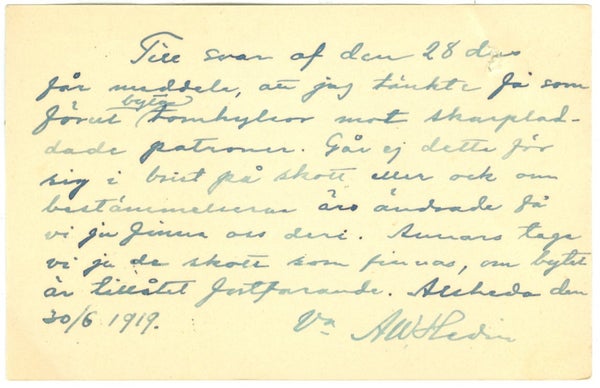 Till svar af den 28 ds
får meddela, att jag tänkte få som
förut byta tomhylsor mot skarplad-
dade patroner. Går ej detta för
sig i brist på skott eller ock om
bestämmelserna äro ändrade få
vi ju finna oss deri. Annars taga
vi ju de skott som finnas, om bytet
är tillåtet fortfarande. Alsheda den
30/6 1919. Vn AW Hedin